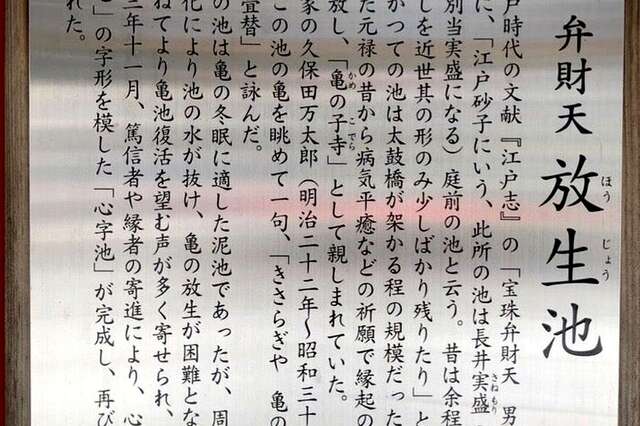 弁財天 放生池
ほうじょう
戸時代の文献『江戸志』の「宝珠弁財天 男
に、「江戸砂子にいう、此所の池は長井実盛
さねもり
別当実盛になる)庭前の池と云う。昔は余程
しを近世其の形のみ少しばかり残りたり」と
かつての池は太鼓橋が架かる程の規模だった
た元禄の昔から病気平癒などの祈願で縁起の
放し、「亀の子寺」として親しまれていた。
かめ こでら
家の久保田万太郎(明治二十二年〜昭和三十
この池の亀を眺めて一句、「きさらぎや 亀の
畳替」と詠んだ。
の池は亀の冬眠に適した泥池であったが、周
化により池の水が抜け、亀の放生が困難とな
ねてより亀池復活を望む声が多く寄せられ、
三年十一月、篤信者や縁者の寄進により、心
」の字形を模した「心字池」が完成し、再び
れた。